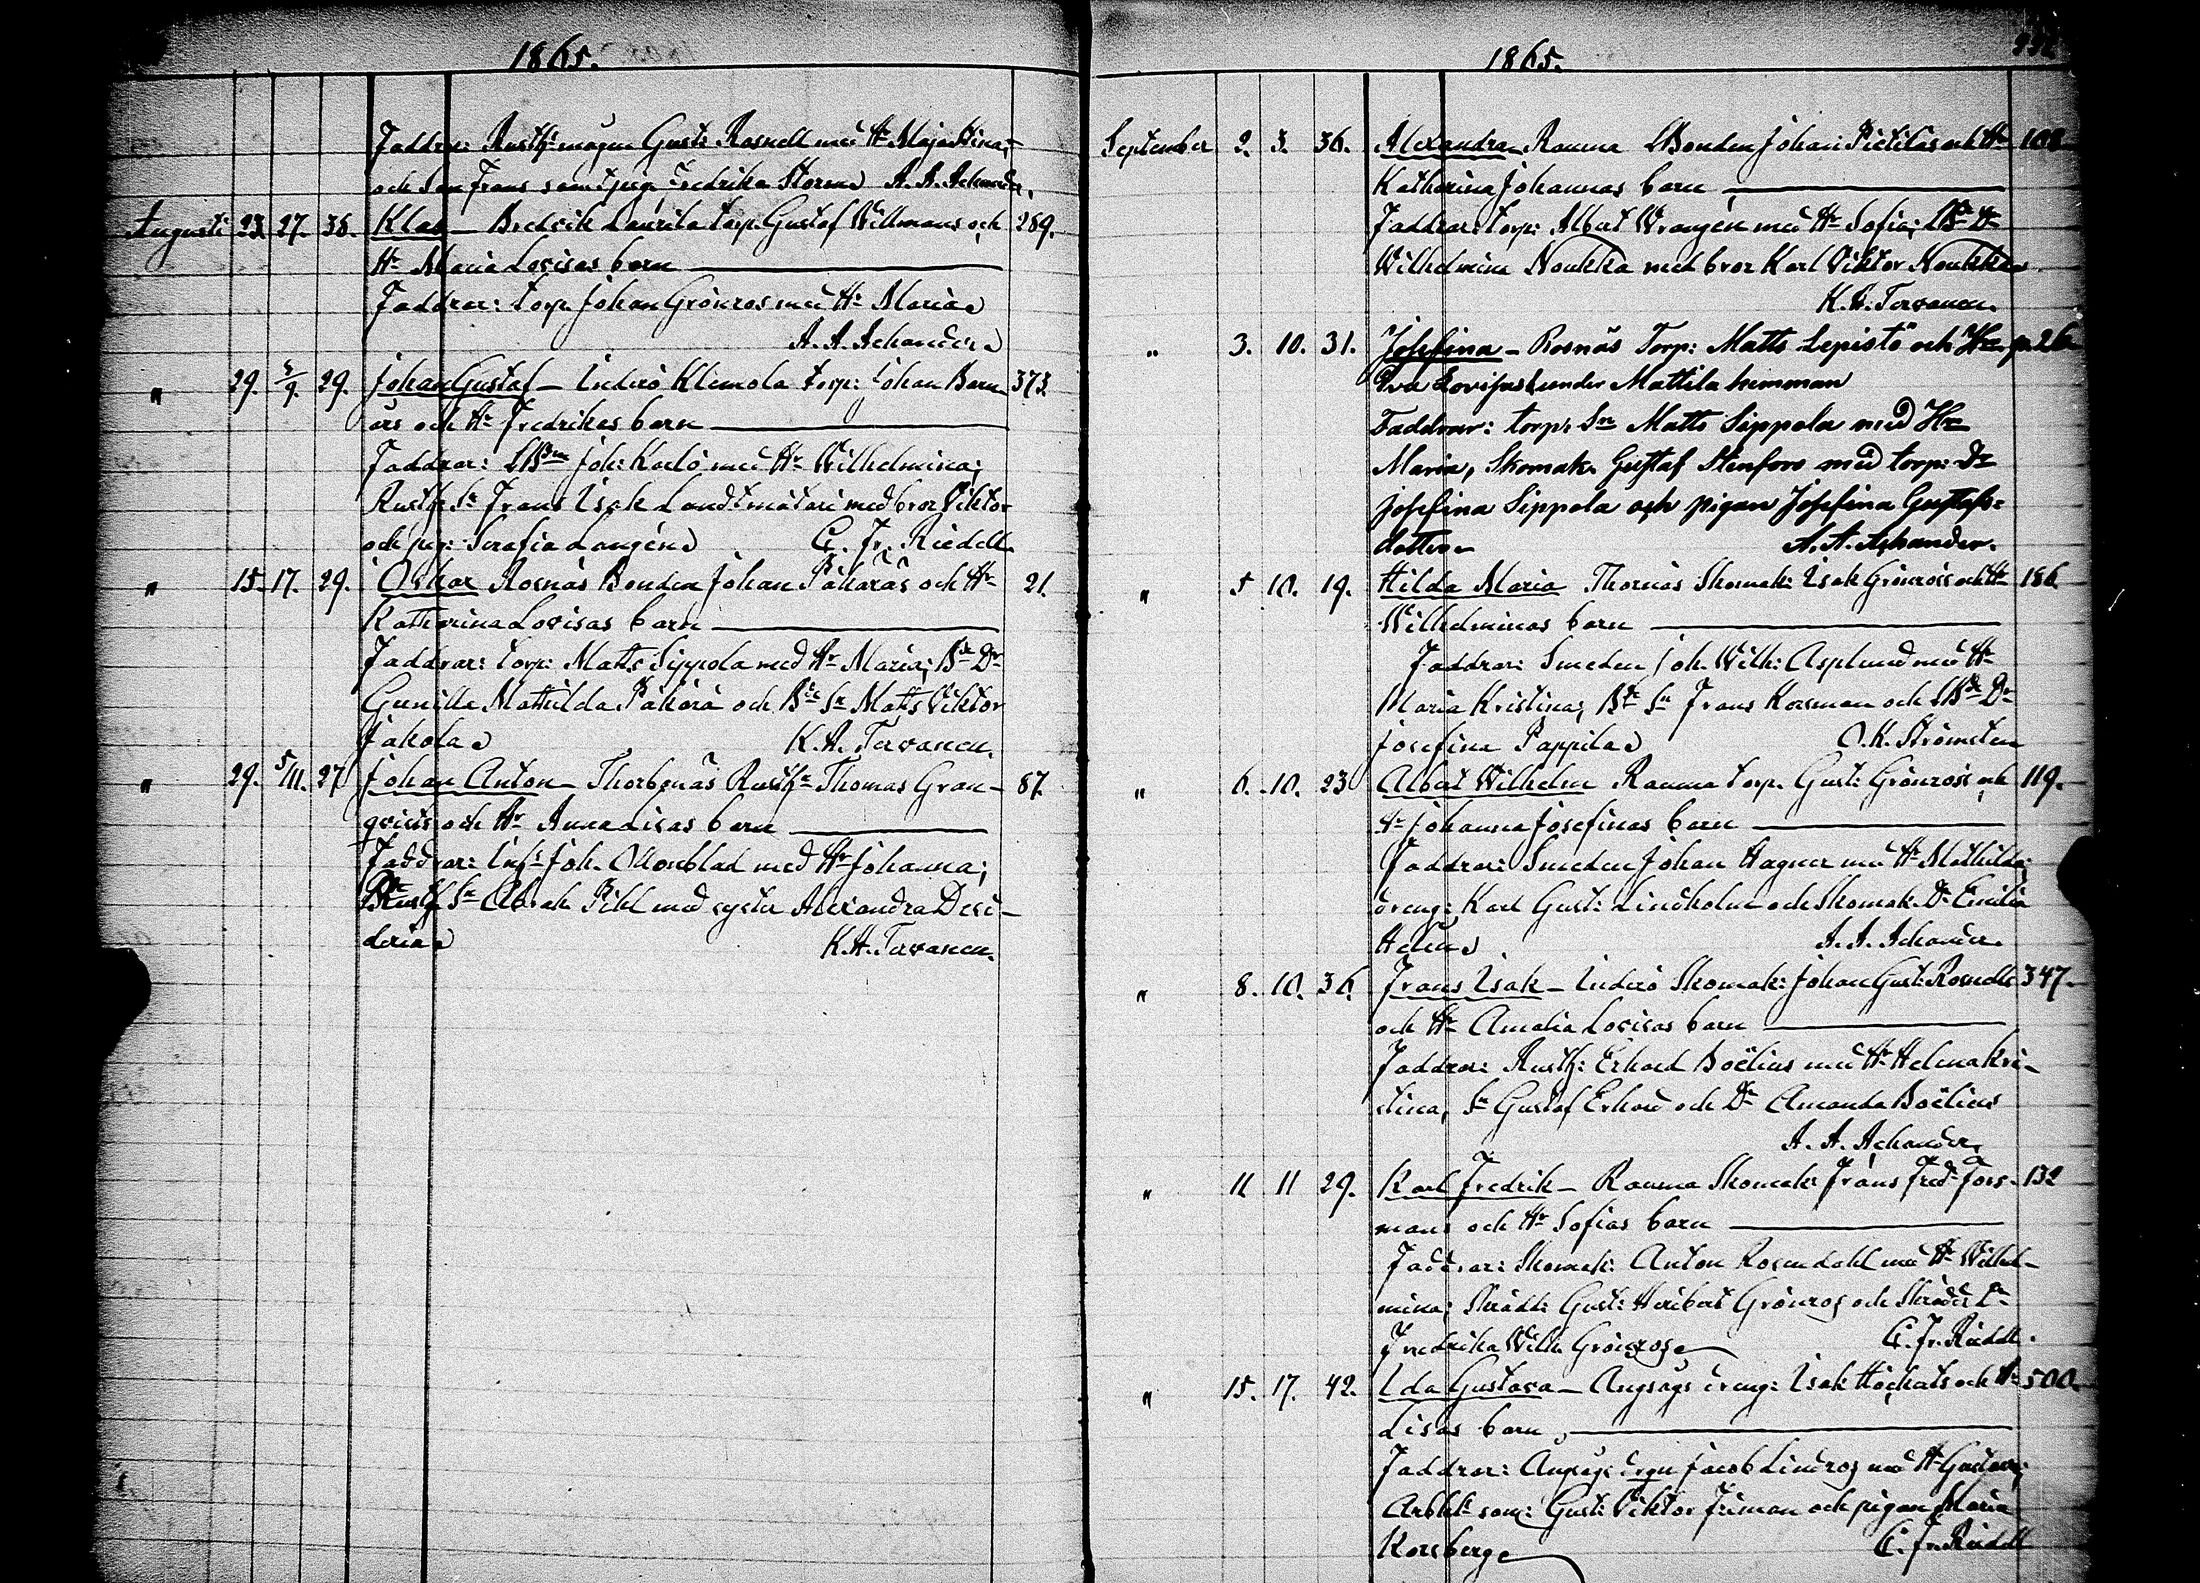 1865.
Faddrar: Rusth: mågen Gust: Rosnell med Hu Maja Stina,
och Son Frans samt pig. Fredrika Storm A. A. Achander.
Augusti 23. 27. 38. Klas – Bredvik Laurila torp. Gustaf Willmans och 289.
Hu Maria Lovisas barn
Faddrar: torp. Johan Grönros med Hu Maria
A. A. Achander
" 29. 3/9. 29. Johan Gustaf – Inderö Klemola torp: Johan Barn 373.
ers och Hu Fredrikas barn
Faddrar: Joh: Karlö med Hu Wilhelmina;
Rusth: Sn Frans Isak Landtmätari med bror Viktor
och pig: Serafia Langén C. Fr. Riedell.
" 15. 17. 29. Oskar Rosnäs Bonden Johan Päkäräs och Hu 21.
Katharina Lovisas barn
Faddrar: torp: Matts Sippola med Hu Maria; Bde Dr
Gunilla Mathilda Päkärä och Bde Sn Matts Viktor
Jakola K. A. Tervanen.
" 29. 5/11. 27 Johan Anton – Thorbgnäs Rusth: Thomas Gran- 87.
qvists och Hu Anna Lisas barn
Faddrar: Inh: Joh. Odenblad med Hu Johanna;
Rusth: Sn Abrah: Pihl med syster Alexandra Desi-
deria K. A. Tervanen.
1865.
September 2. 3. 36. Alexandra Rauma LBonden Johan Pietiläs och Hu 108
Katharina Johannas barn
Faddrar: torp: Albert Wrangén med Hu Sofia; Dr
Wilhelmina Noukka med bror Karl Viktor Noukka
K. A. Tervanen.
" 3. 10. 31. Josefina – Rosnäs Torp: Matts Lepistö och Hu p. 26
Eva Lovisas under Mattila hemman
Faddrar: torp: Sn Matts Sippola med Hu
Maria, Skomak. Gustaf Stenfors med torp: Dr
Josefina Sippola och pigan Josefina Gustafs=
dotter A. A. Achander.
" 5 10. 19. Hilda Maria Thornäs Skomak: Isak Grönroos och Hu 186
Wilhelminas barn
Faddrar: Smeden Joh. Wilh: Asplund med Hu
Maria Kristina; Bde Sn Frans Korsman och Dr
Josefina Pappila O. K. Strömsten
" 6. 10. 23 Albert Wilhelm Rauma torp. Gust: Grönroos och 119.
Hu Johanna Josefinas barn
Faddrar: Smeden Johan Hagner med Hu Mathilda;
dreng: Karl Gust: Lindholm och Skomak: Dr Emilia
Helin A. A. Achander.
" 8. 10. 36. Frans Isak – Inderö Skomak: Johan Gust: Rosnells 347.
och Hu Amalia Lovisas barn
Faddrar: Rusth: Erhard Boëlius med Hu Helena Kri-
stina, Sn Gustaf Erhard och Dr Amanda Boëlius
A. A. Achander,
" 11 11 29. Karl Fredrik – Rauma Skomak: Frans Fred: Fors- 132
mans och Hu Sofias barn
Faddrar: Skomak: Anton Rosendahl med Hu Wilhel-
mina; Skrädd: Gust: Heribert Grönros och Skrädd: Dr
Fredrika Wilh: Grönroos C. Fr. Riedell.
" 15. 17. 42. Ida Gustava – Angsågs dreng: Isak Höckats och Hu 500.
Lisas barn
Faddrar: Angsågs dreng Jacob Lindros med Hu Gustava;
Gust: Viktor Friman och pigan Maria
Korsberg C. Fr. Riedell